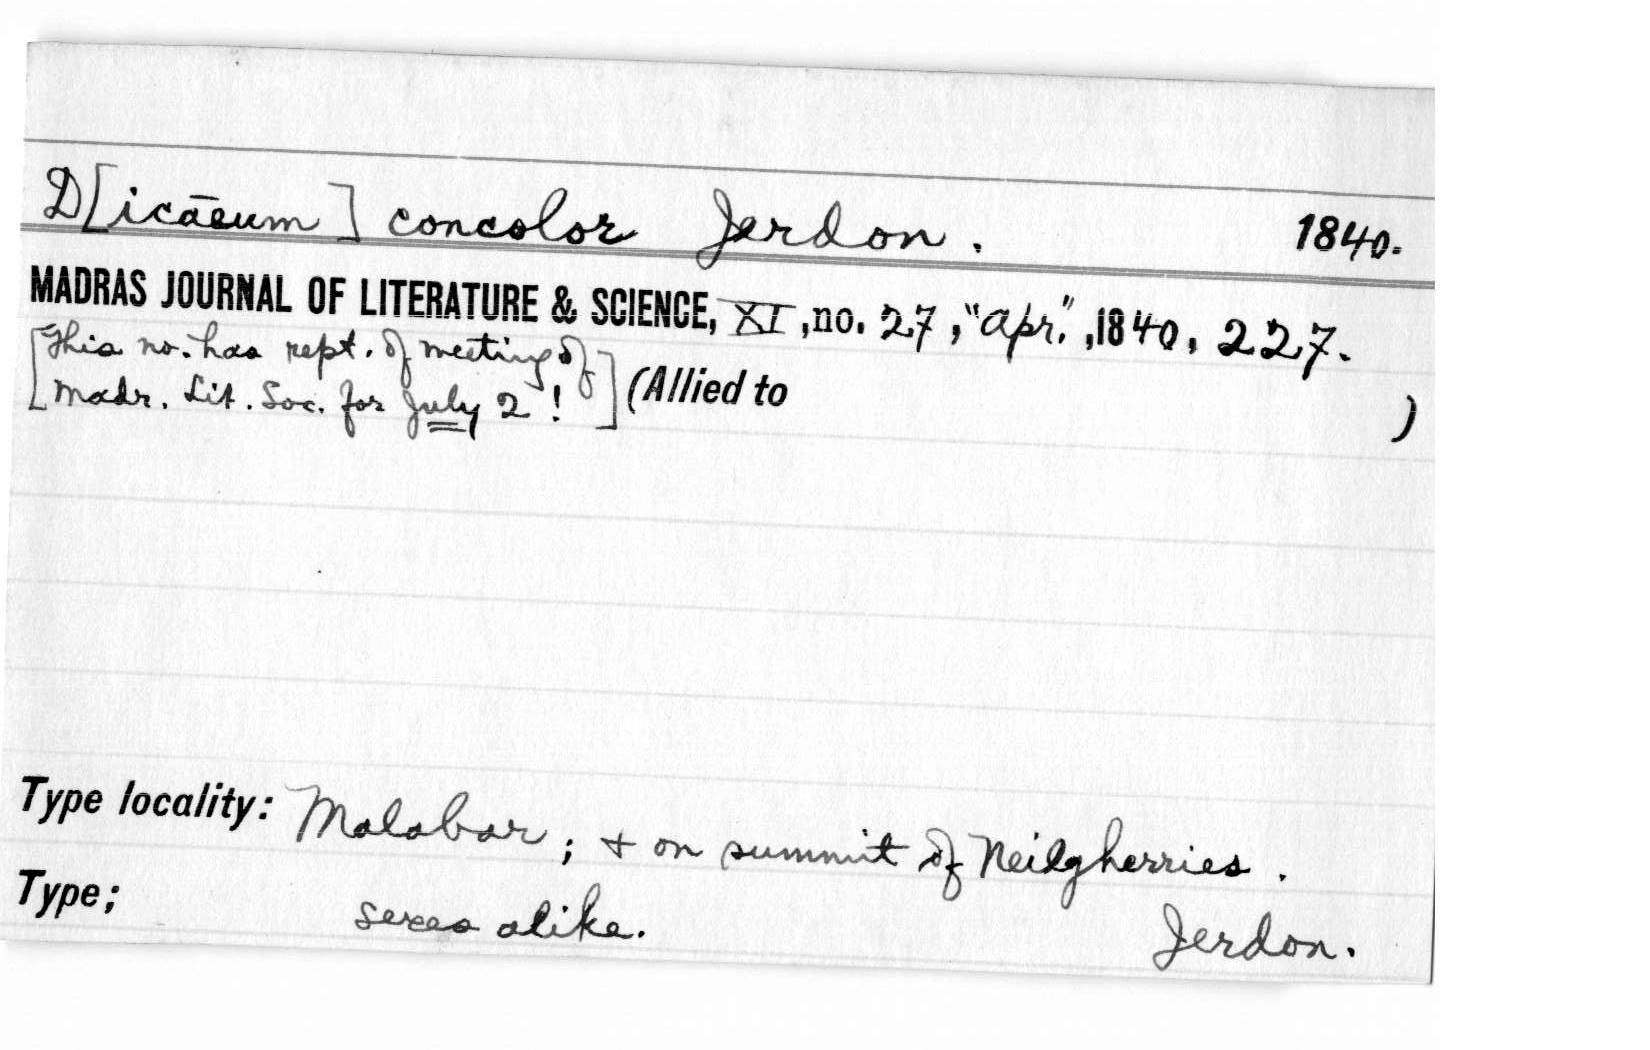 D[icāeum] concolor Jerdon. 1840.
MADRAS JOURNAL OF LITERATURE & SCIENCE, XI, no. 27, "Apr.", 1840, 227.
[This no. has rept. of meeting of
Madr. Lit. Soc. for July 2!] (Allied to )
Type locality: Malabar; + on summit of Neilgherries.
Type; sexes alike. Jerdon.